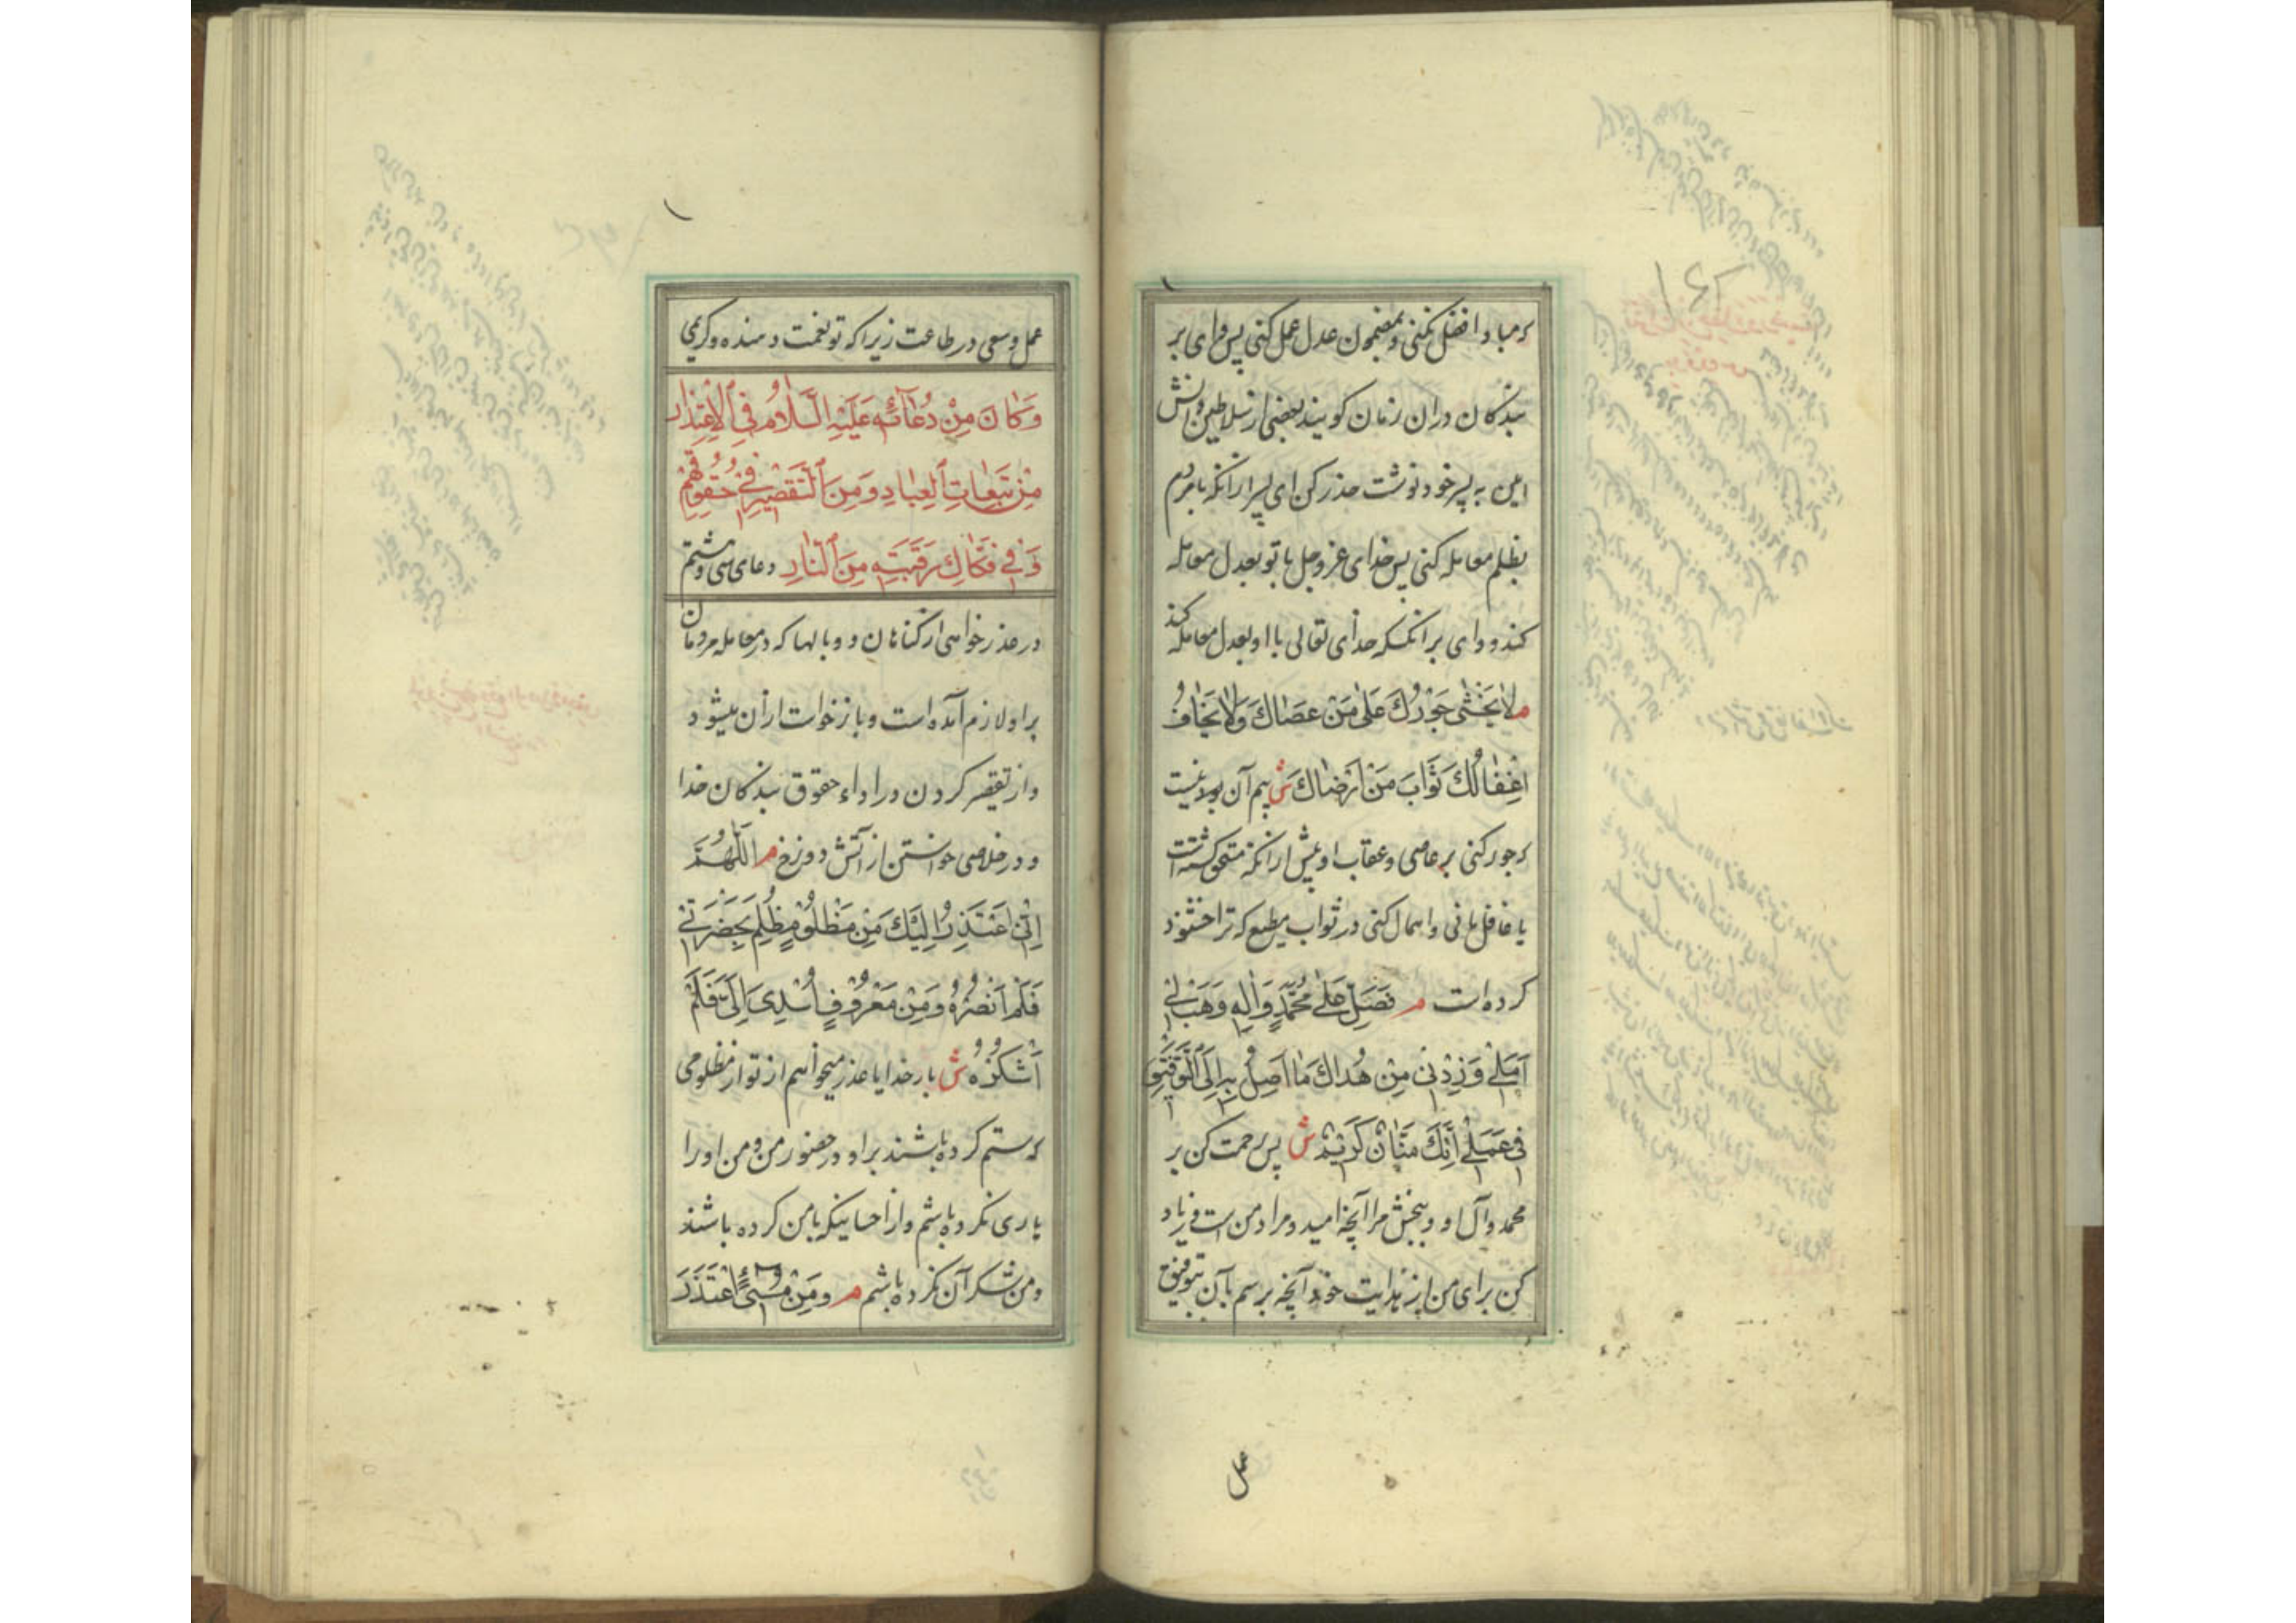 که مبادا فضل نکنی و بمضمون عدل عمل کنی پس وای بر
بندکان در ان زمان کویند بعضی از سلاطین دانش
ایمن به پسر خود نوشت حذر کن ای پسر ازانکه با مردم
بظلم معامله کنی پس خدای عز و جل با تو بعدل معامله
کند و وای بر انکسکه خدای تعالی با او بعدل معامله کند
م لا يَخْشٰى جَوْرُكَ عَلٰى مَنْ عَصٰاكَ وَلا يَخٰافُ
اغْفٰالُكَ ثَوٰابَ مَنْ اَرْضٰاكَ ش بیم آن نیست
که جور کنی بر عاصی و عقاب او بیش ازانکه مستحق کشته است
یا غافل مانی و اهمال کنی در ثواب مطیع که ترا خشنود
کرده است م فَصَلِّ عَلٰى مُحَمَّدٍ وَاٰلِهِ وَهَبْ لِي
اَمَلِي وَزِدْنِي مِنْ هُدٰاكَ مٰا اَصِلُ بِهِ اِلَى التَّوْفِيقِ
فِي عَمَلِي اِنَّكَ مَنّٰانٌ كَرِيمٌ ش پس رحمت کن بر
محمد و آل او و ببخش مرا آنچه امید و مراد من است و زیاد
کن برای من از هدایت خود آنچه برسم بآن بتوفیق
عمل
عمل و سعی در طاعت زیرا که تو نعمت دهنده و کریمی
وَكٰانَ مِنْ دُعٰائِهِ عَلَيْهِ السَّلٰامُ فِي الْاِعْتِذٰارِ
مِنْ تَبِعٰاتِ الْعِبٰادِ وَمِنَ التَّقْصِيرِ فِي حُقُوقِهِمْ
وَفِي فَكٰاكِ رَقَبَتِهِ مِنَ النّٰارِ دعای سی و هشتم
در عذر خواهی از کناهان و وبالها که در معامله مردمان
بر او لازم آمده است و باز خواست از ان میشود
و از تقصیر کردن در اداء حقوق بندکان خدا
و در خلاصی خواستن از آتش دوزخ م اَللّٰهُمَّ
اِنِّي اَعْتَذِرُ اِلَيْكَ مِنْ مَظْلُومٍ ظُلِمَ بِحَضْرَتِي
فَلَمْ اَنْصُرْهُ وَمِنْ مَعْرُوفٍ اُسْدِيَ اِلَيَّ فَلَمْ
اَشْكُرْهُ ش بار خدایا عذر میخواهم از تو از مظلومی
که ستم کرده باشند بر او در حضور من و من او را
یاری نکرده باشم و از احسانیکه بامن کرده باشند
و من شکر آن نکرده باشم م وَمِنْ مُسِيءٍ اعْتَذَرَ